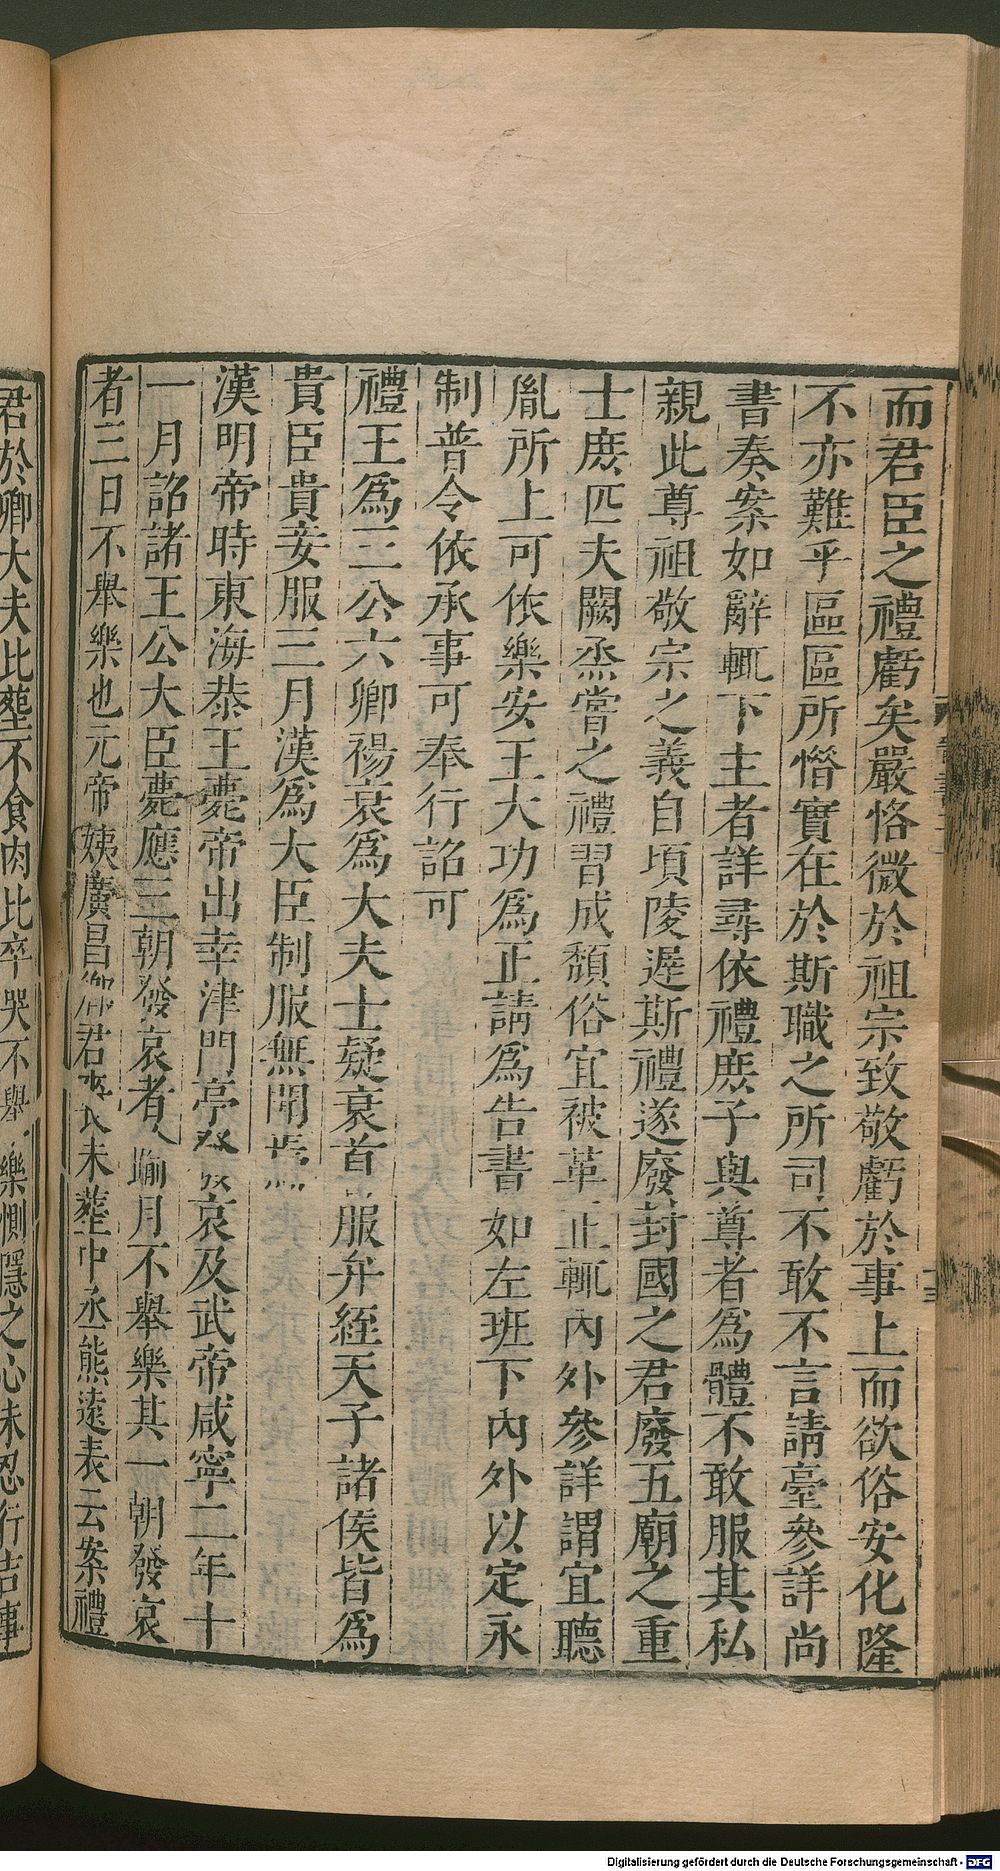 而君臣之禮虧矣嚴恪微於祖宗致敬虧於事上而欲俗安化隆
不亦難乎區區所惜實在於斯職之所司不敢不言請臺參詳尚
書奏案如辭輒下主者詳尋依禮庶子與尊者爲體不敢服其私
親此尊祖敬宗之義自頃陵遲斯禮遂廢封國之君廢五廟之重
士庶匹夫闕烝嘗之禮習成頹俗宜被革正輒內外參詳謂宜聽
胤所上可依樂安王大功爲正請爲告書如左班下內外以定永
制普令依承事可奉行詔可
禮王爲三公六卿錫衰爲大夫士疑衰首服弁絰天子諸侯皆爲
貴臣貴妾服三月漢爲大臣制服無聞焉
漢明帝時東海恭王薨帝出幸津門亭發哀及武帝咸寧二年十
一月詔諸王公大臣薨應三朝發哀者踰月不舉樂其一朝發哀
者三日不舉樂也元帝姨廣昌鄉君喪未葬中丞熊遠表云案禮
君於卿大夫比葬不食肉比卒哭不舉樂惻隱之心未忍行吉事
Digitalisierung gefördert durch die Deutsche Forschungsgemeinschaft - DFG